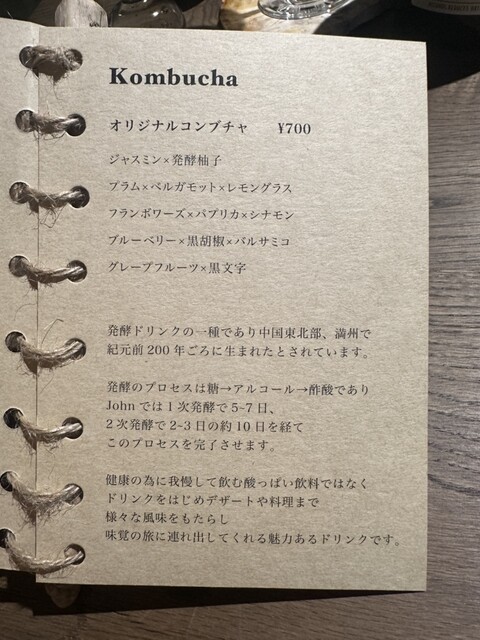 Kombucha
オリジナルコンブチャ ¥700
ジャスミン×発酵柚子
プラム×ベルガモット×レモングラス
フランボワーズ×パプリカ×シナモン
ブルーベリー×黒胡椒×バルサミコ
グレープフルーツ×黒文字
発酵ドリンクの一種であり中国東北部、満州で
紀元前200年ごろに生まれたとされています。
発酵のプロセスは糖→アルコール→酢酸であり
Johnでは1次発酵で5~7日、
2次発酵で2~3日の約10日を経て
このプロセスを完了させます。
健康の為に我慢して飲む酸っぱい飲料ではなく
ドリンクをはじめデザートや料理まで
様々な風味をもたらし
味覚の旅に連れ出してくれる魅力あるドリンクです。